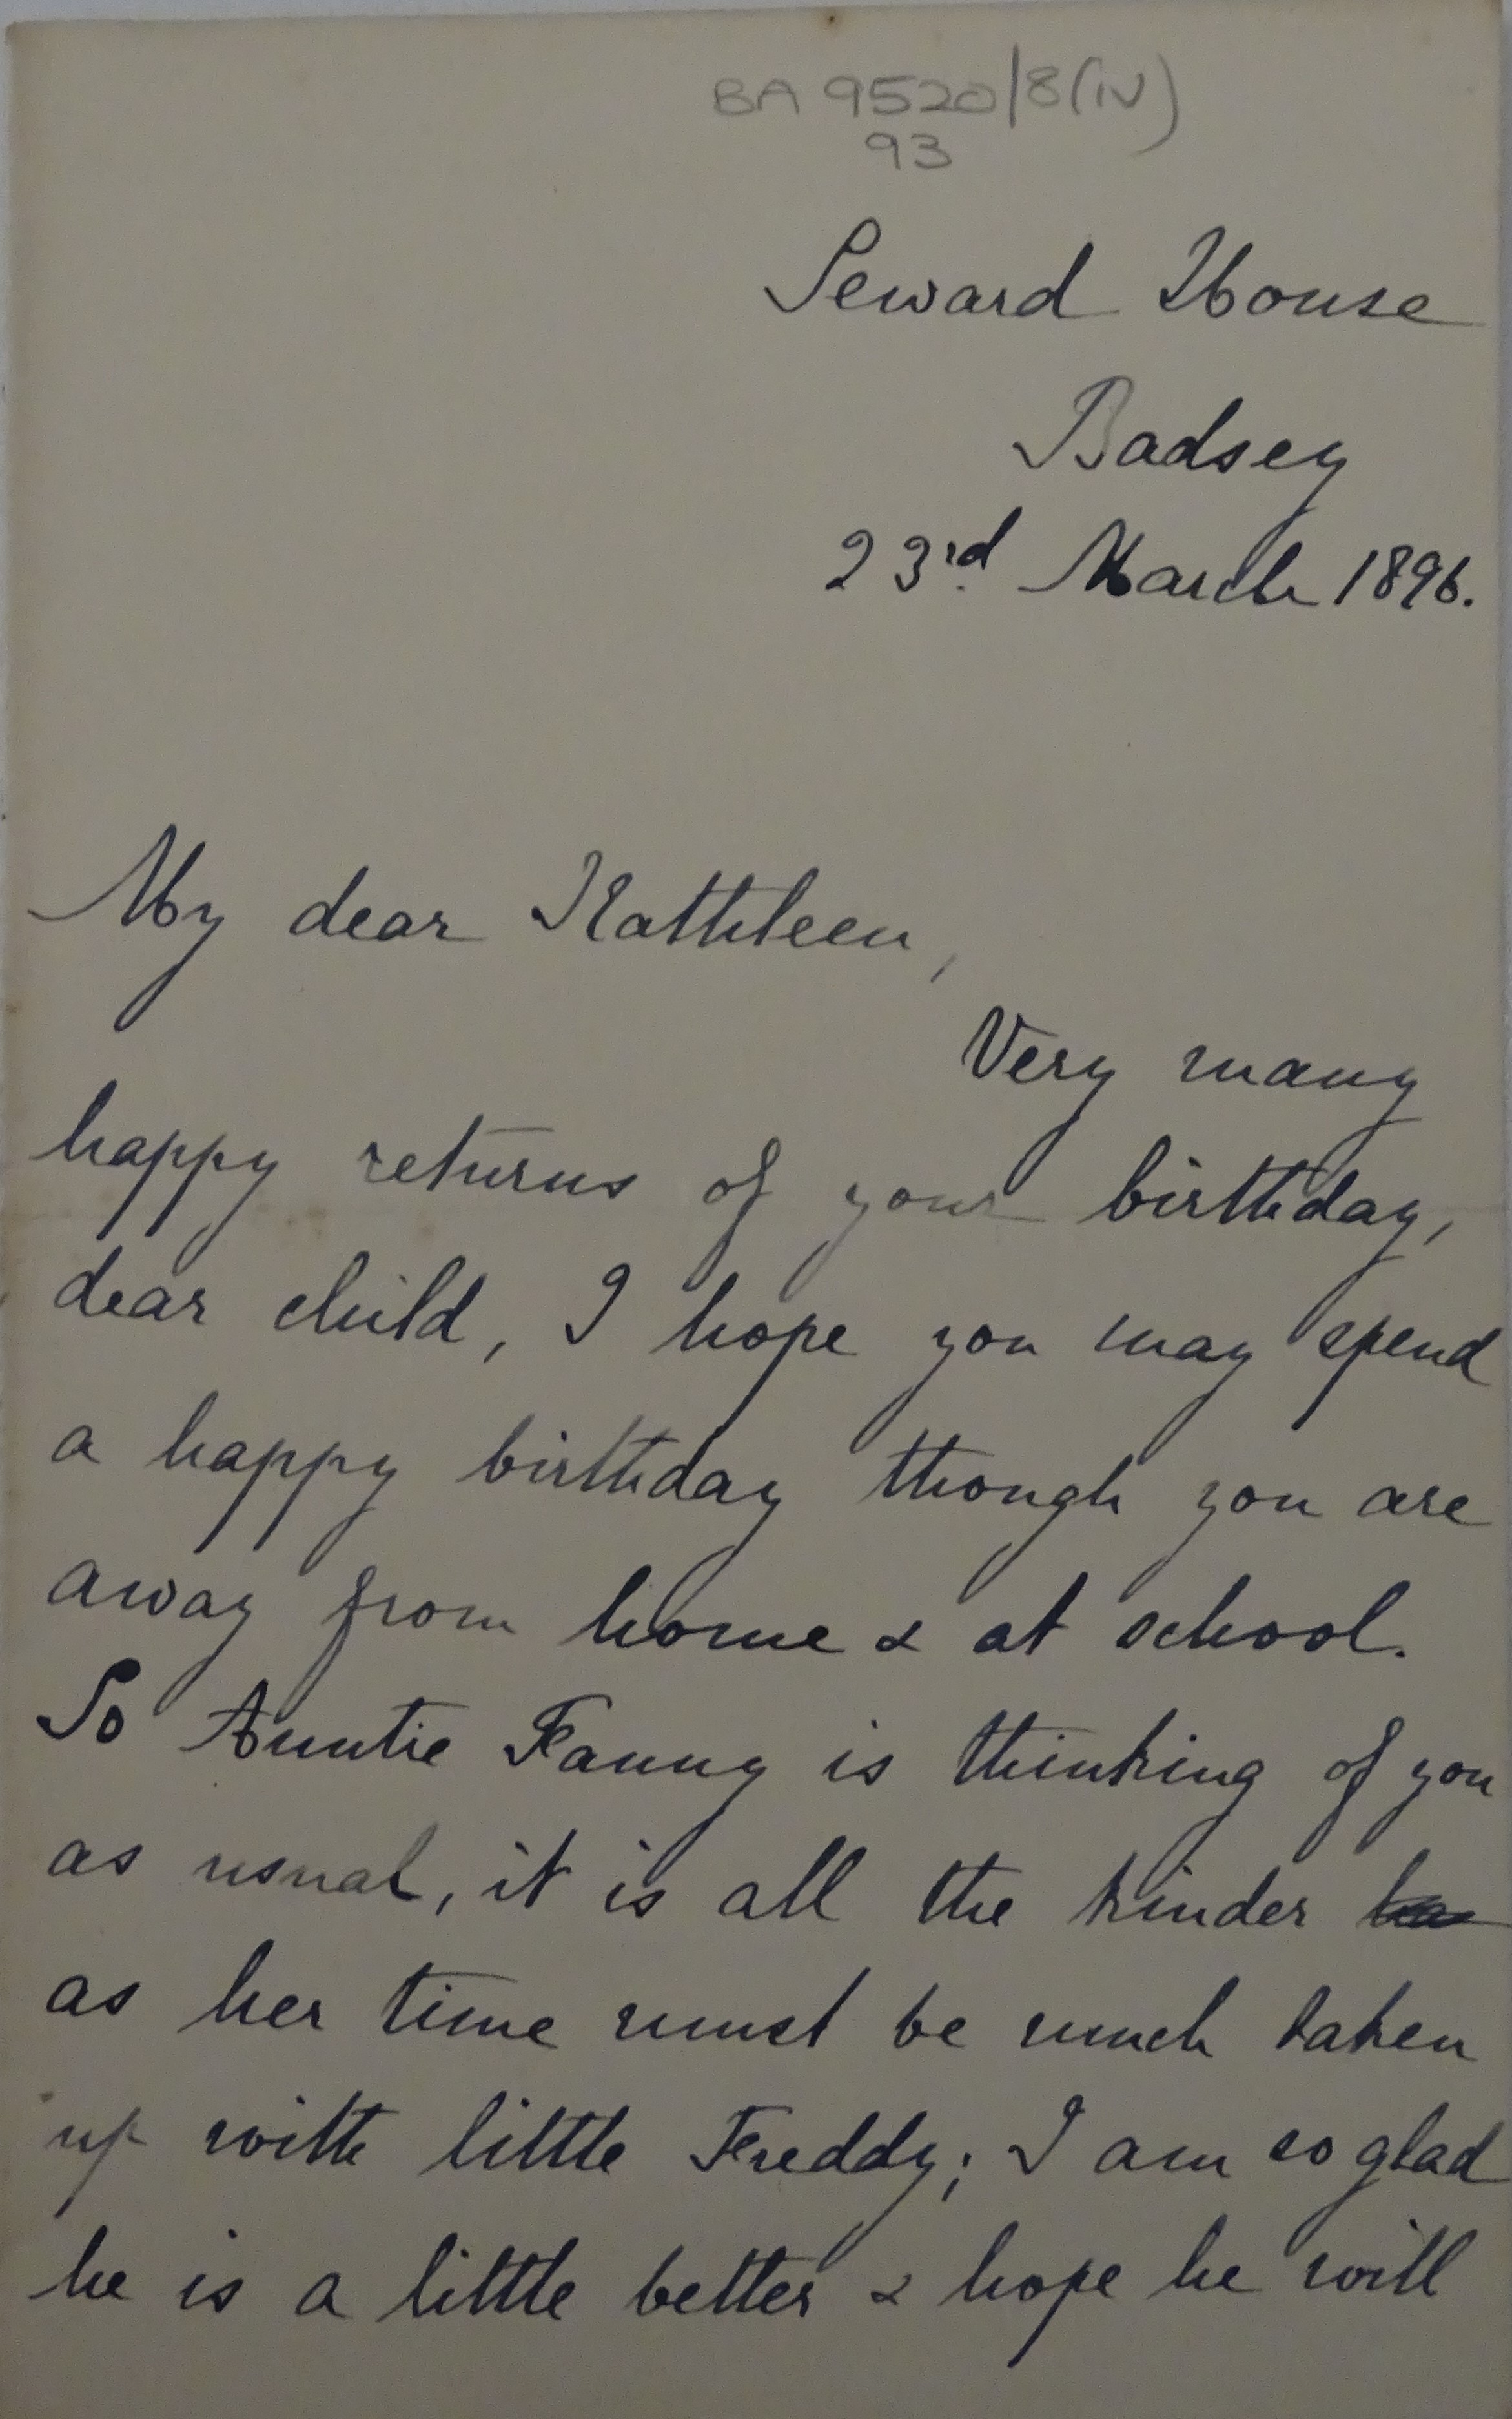 BA 9520/8(iv)
93
Seward House
Badsey
23rd March 1896.
My dear Kathleen,
Very many
happy returns of your birthday,
dear child, I hope you may spend
a happy birthday though you are
away from home & at school.
So Auntie Fanny is thinking of you
as usual, it is all the kinder
as her time must be much taken
up with little Freddy; I am so glad
he is a little better & hope he will